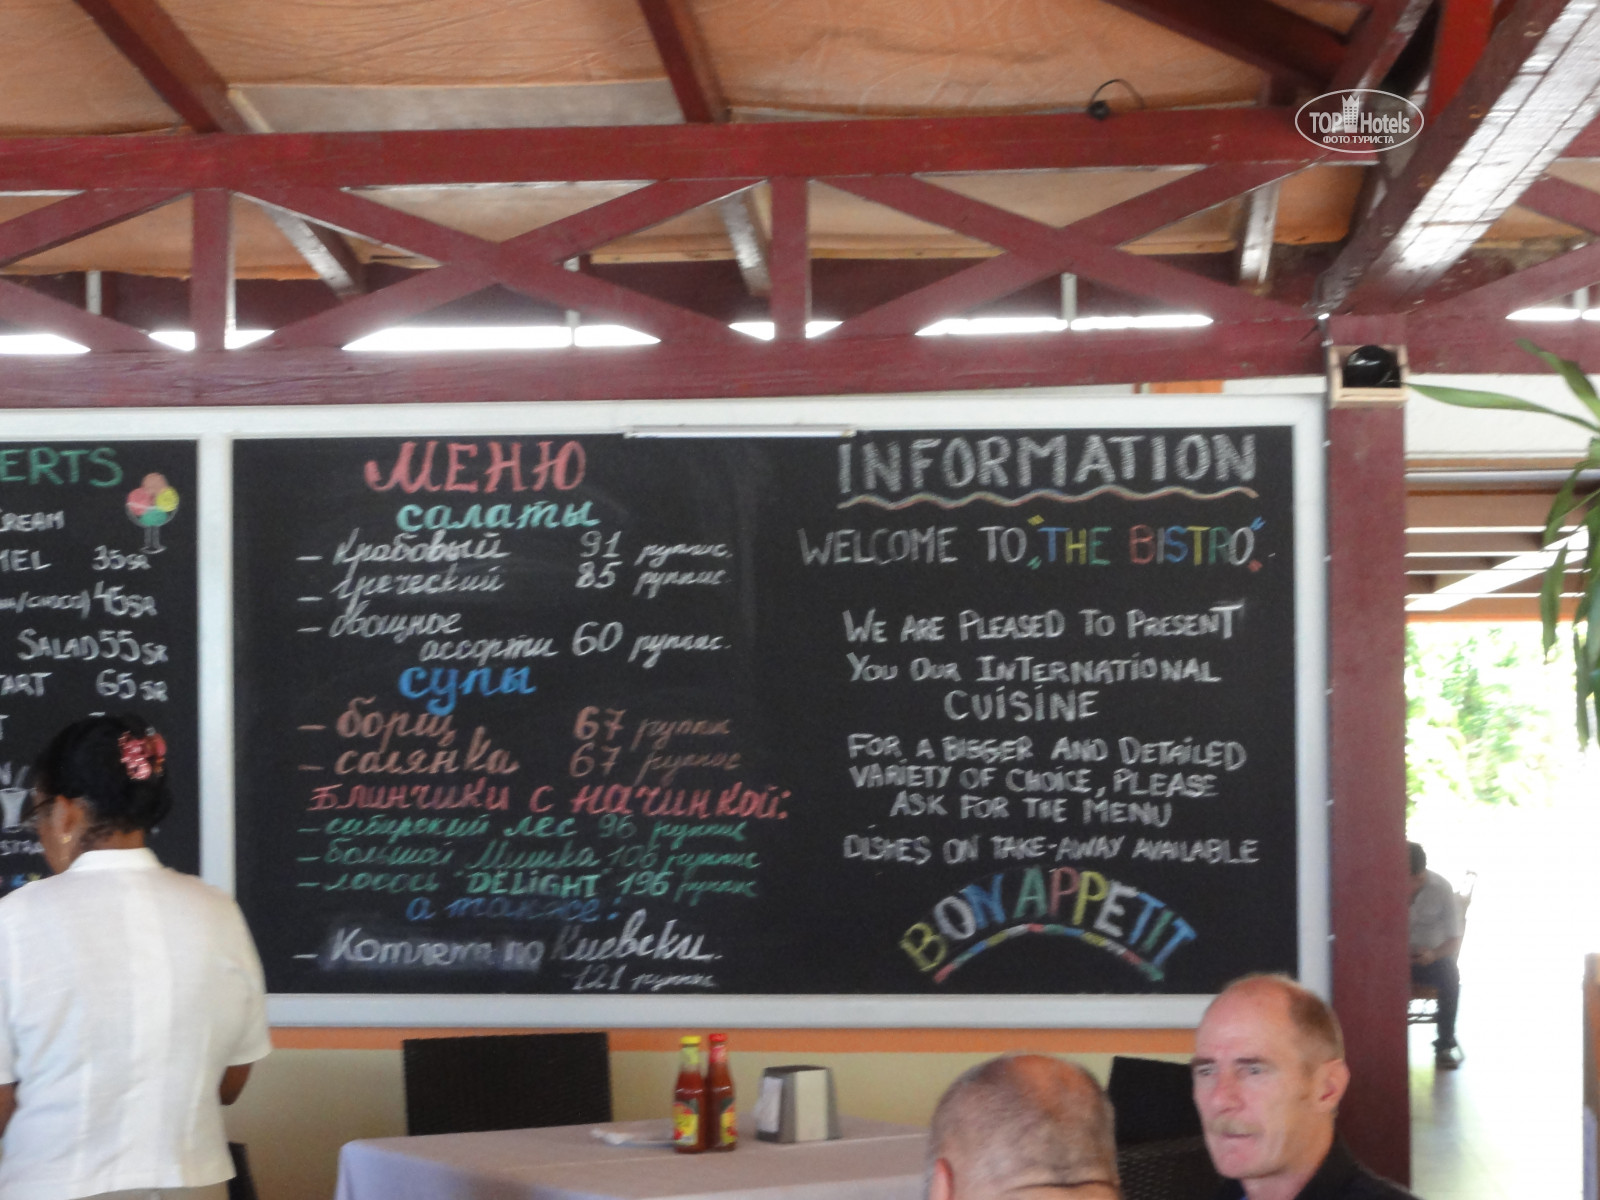 TOP Hotels
ФОТО ТУРИСТА
ERTS
CREAM
MEL 35SR
45SR
SALAD 55SR
TART 65SR
МЕНЮ
салаты
– Крабовый 91 руппис.
– Греческий 85 руппис.
– Овощное
ассорти 60 руппис.
супы
– борщ 67 руппис
– солянка 67 руппис
Блинчики с начинкой:
– сибирский лес 96 руппис
– большой Мишка 106 руппис
– лосось "DELIGHT" 196 руппис
а также:
– Котлета по Киевски.
121 руппис
INFORMATION
WELCOME TO „THE BISTRO“
WE ARE PLEASED TO PRESENT
YOU OUR INTERNATIONAL
CUISINE
FOR A BIGGER AND DETAILED
VARIETY OF CHOICE, PLEASE
ASK FOR THE MENU
DISHES ON TAKE-AWAY AVAILABLE
BON APPETIT